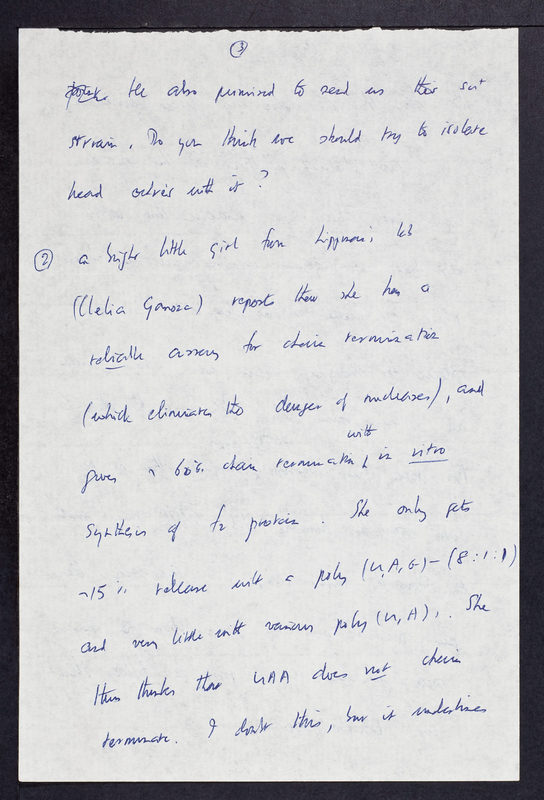 ③
He also promised to send us this su+
strain. Do you think we should try to isolate
head ochres with it?
② a bright little girl from Lippmann's lab
(Clelia Ganoza) reports that she has a
reliable assay for chain termination
(which eliminates the danger of nucleases), and
gives ~ 60% chain termination with in vitro
synthesis of f2 protein. She only gets
~15% release with a poly (U,A,G)-(8:1:1)
and very little with various poly (U,A),. She
thus thinks that UAA does not chain
terminate. I doubt this, but it underlines